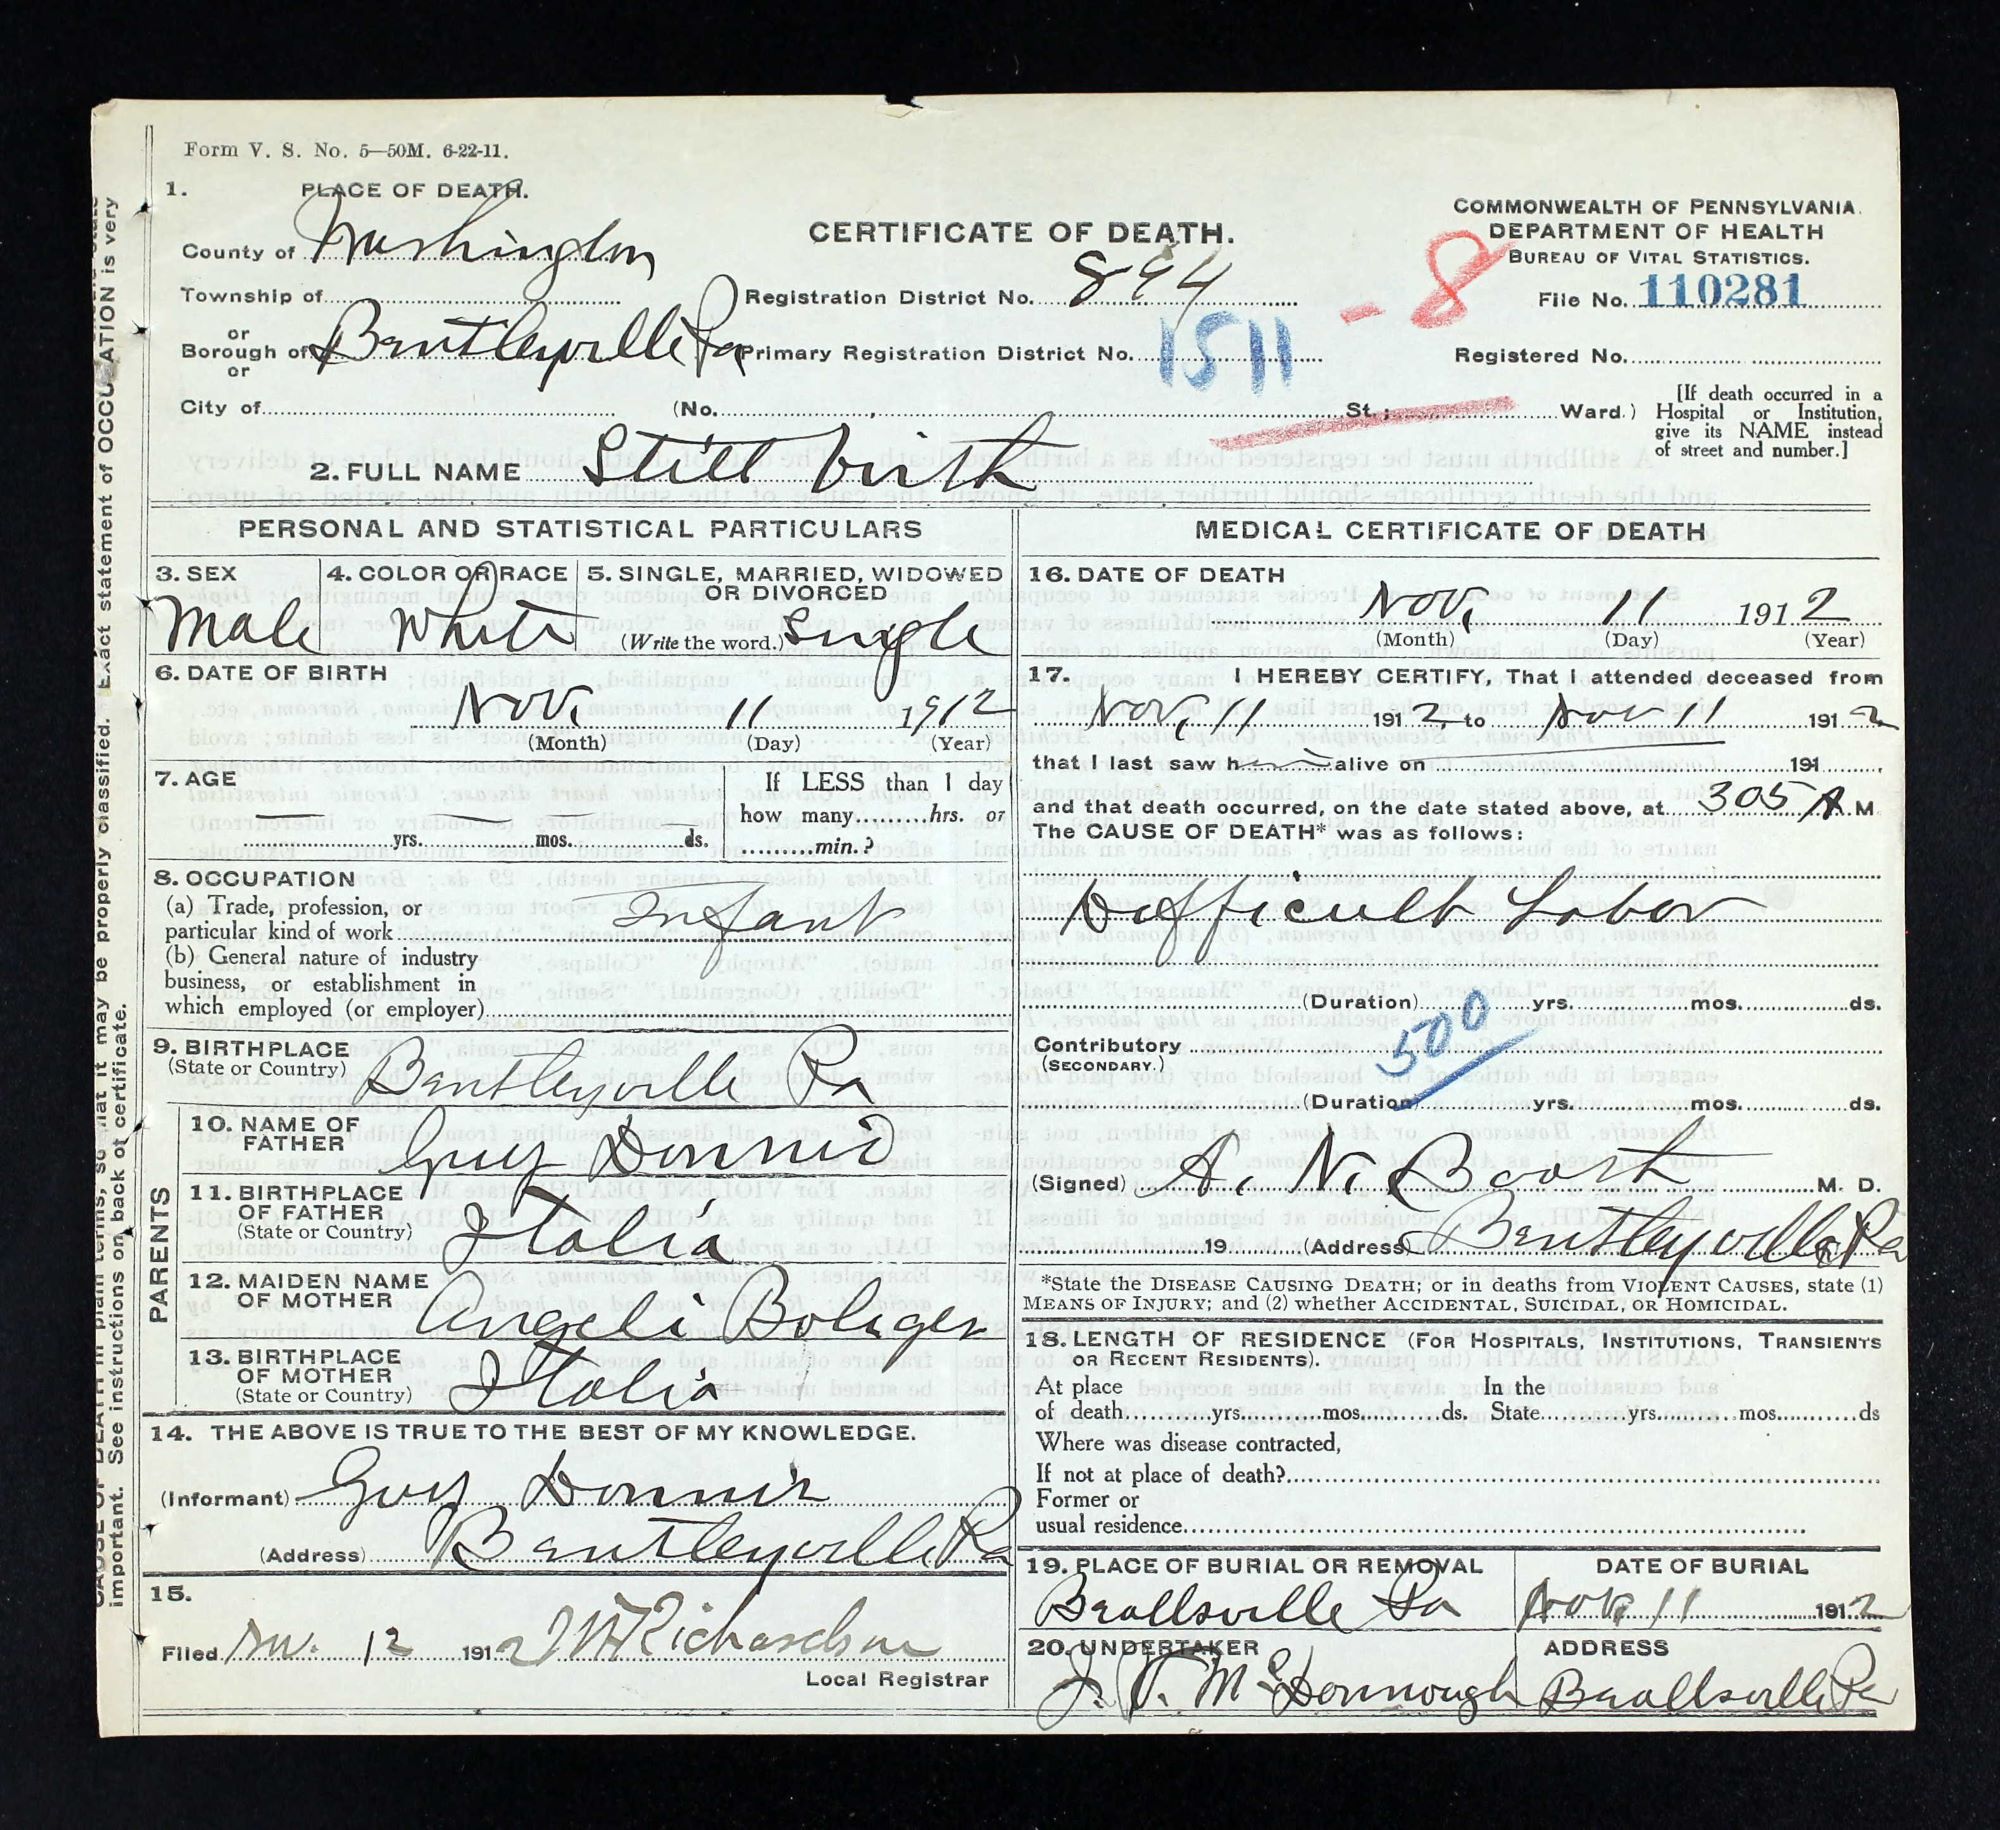 Form V. S. No. 5—50M. 6-22-11.
1. PLACE OF DEATH.
County of Washington
Township of
or
Borough of Bentleyville Pa
or
City of
CERTIFICATE OF DEATH.
Registration District No. 894
Primary Registration District No. 1511
(No. , St.; Ward.)
COMMONWEALTH OF PENNSYLVANIA.
DEPARTMENT OF HEALTH
BUREAU OF VITAL STATISTICS.
- 8
File No. 110281
Registered No.
[If death occurred in a
Hospital or Institution,
give its NAME instead
of street and number.]
2. FULL NAME Still birth
PERSONAL AND STATISTICAL PARTICULARS
3. SEX
Male
4. COLOR OR RACE
White
5. SINGLE, MARRIED, WIDOWED
OR DIVORCED
(Write the word.) Single
6. DATE OF BIRTH
Nov. 11 1912
(Month) (Day) (Year)
7. AGE
— — —
yrs. mos. ds.
If LESS than 1 day
how many hrs. or
min.?
8. OCCUPATION
(a) Trade, profession, or
particular kind of work Infant
(b) General nature of industry
business, or establishment in
which employed (or employer)
9. BIRTHPLACE
(State or Country) Bentleyville Pa
PARENTS
10. NAME OF
FATHER Guy
11. BIRTHPLACE
OF FATHER
(State or Country) Italia
12. MAIDEN NAME
OF MOTHER Angeli
13. BIRTHPLACE
OF MOTHER
(State or Country) Italia
14. THE ABOVE IS TRUE TO THE BEST OF MY KNOWLEDGE.
(Informant) Guy
(Address) Bentleyville Pa
15.
Filed Nov. 12 1912 Richardson
Local Registrar
MEDICAL CERTIFICATE OF DEATH
16. DATE OF DEATH
Nov. 11 1912
(Month) (Day) (Year)
17. I HEREBY CERTIFY, That I attended deceased from
Nov. 11 1912, to Nov 11 1912
that I last saw h alive on 191 ,
and that death occurred, on the date stated above, at 305 A.M.
The CAUSE OF DEATH* was as follows:
Difficult Labor
(Duration) yrs. mos. ds.
500
Contributory
(SECONDARY.)
(Duration) yrs. mos. ds.
(Signed) A. N. Boort M. D.
19 (Address) Bentleyville Pa
*State the DISEASE CAUSING DEATH; or in deaths from VIOLENT CAUSES, state (1)
MEANS OF INJURY; and (2) whether ACCIDENTAL, SUICIDAL, OR HOMICIDAL.
18. LENGTH OF RESIDENCE (FOR HOSPITALS, INSTITUTIONS, TRANSIENTS
OR RECENT RESIDENTS).
At place In the
of death yrs. mos. ds. State yrs. mos. ds
Where was disease contracted,
If not at place of death?
Former or
usual residence
19. PLACE OF BURIAL OR REMOVAL
Beallsville Pa
DATE OF BURIAL
Nov 11 1912
20. UNDERTAKER
J. V. McDonnough
ADDRESS
Beallsville Pa
classified. Exact statement of OCCUPATION is very
CAUSE OF DEATH in plain terms, so that it may be properly
important. See instructions on back of certificate.